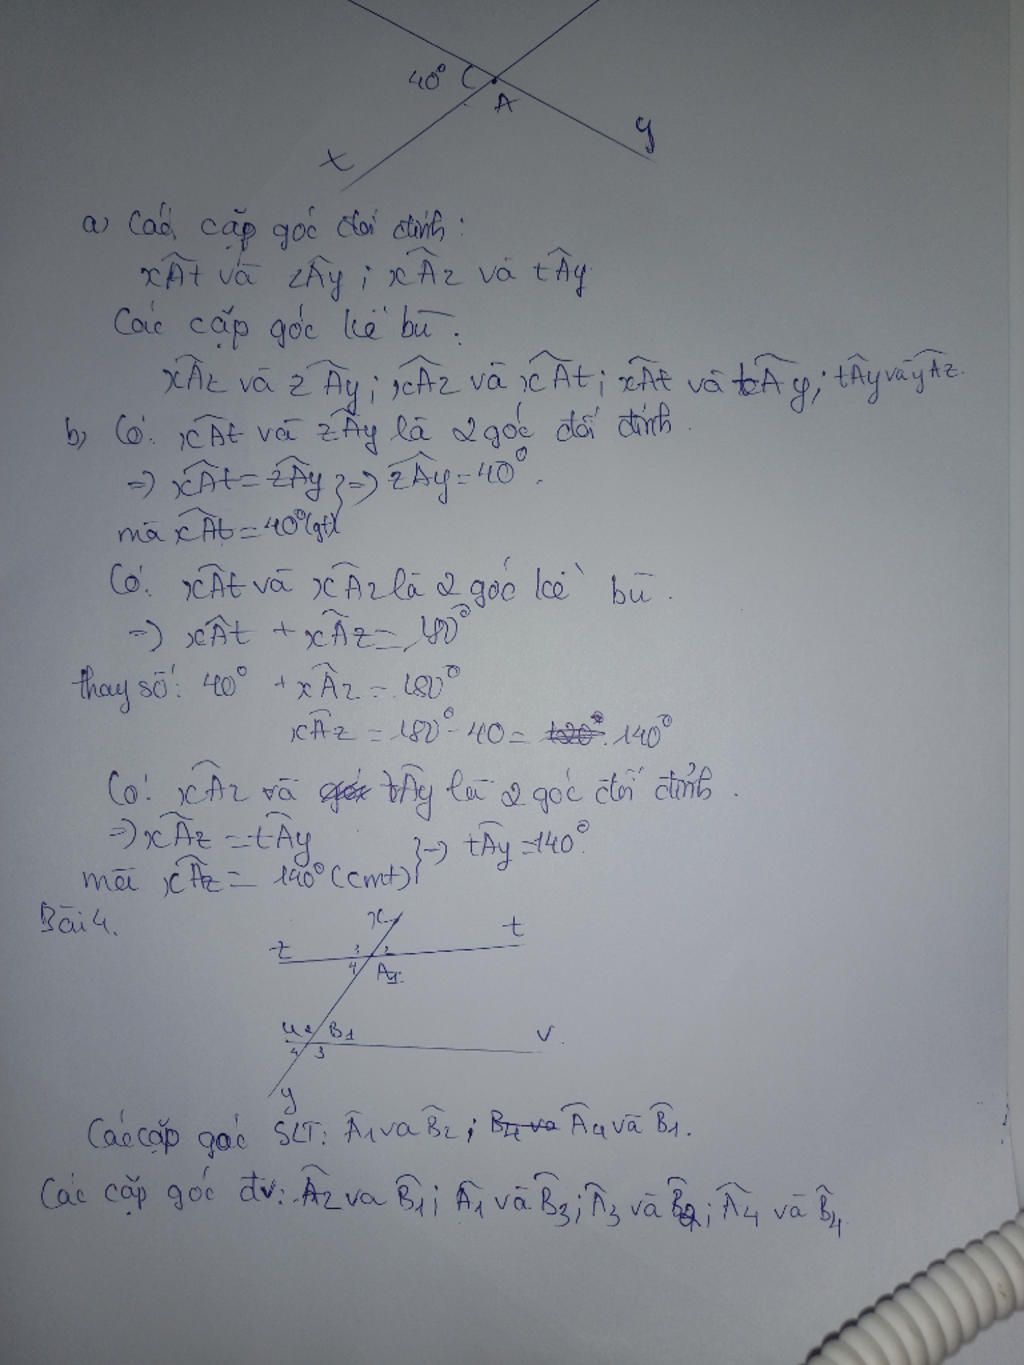 40° A
y
t
a) Các cặp góc đối đỉnh:
xÂt và zÂy; xÂz và tÂy
Các cặp góc kề bù:
xÂz và zÂy; xÂz và xÂt; xÂt và tÂy; tÂy và yÂz.
b) Có: xÂt và zÂy là 2 góc đối đỉnh.
=> xÂt = zÂy } => zÂy = 40°.
mà xÂt = 40° (gt)
Có: xÂt và xÂz là 2 góc kề bù.
=> xÂt + xÂz = 180°
thay số: 40° + xÂz = 180°
xÂz = 180° - 40 = 140°
Có: xÂz và tÂy là 2 góc đối đỉnh.
=> xÂz = tÂy } => tÂy = 140°.
mà xÂz = 140° (cmt)
Bài 4.
x
z 3 2 t
4 A1
u 2 B1 v
4 3
y
Các cặp góc SLT: Â1 va B̂2; Â4 và B̂1.
Các cặp góc đv: Â2 va B̂1; Â1 và B̂3; Â3 và B̂2; Â4 và B̂4